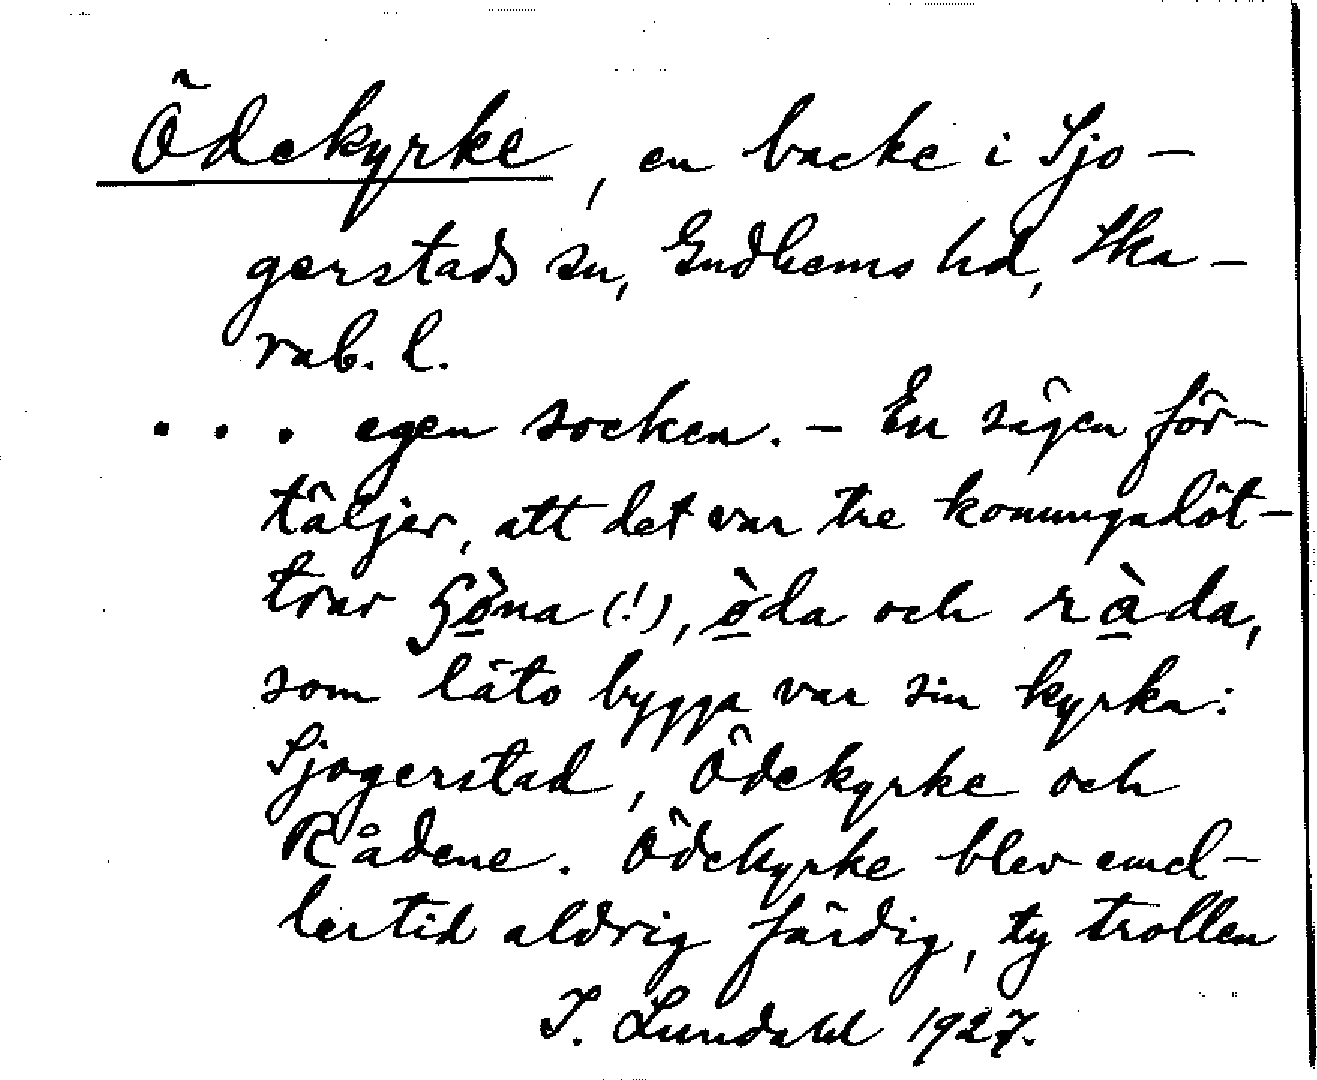 Ödekyrke, en backe i Sjo-
gerstads sn, Gudhems hd, Ska-
rab. l.
. . . egen socken. – En sägen för-
täljer, att det var tre konungadöt-
trar Gòna (!), òda och ràda,
som läto bygga var sin kyrka:
Sjogerstad, Ödekyrke och
Rådene. Ödekyrke blev emel-
lertid aldrig färdig, ty trollen
I. Lundahl 1927.